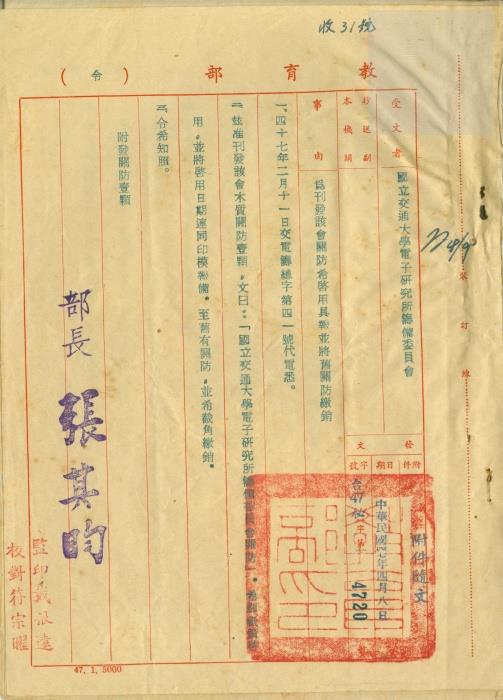 收31號
教育部（令）
受文者 國立交通大學電子研究所籌備委員會
抄送副本機關
事由 爲刊發該會關防希啓用具報並將舊關防繳銷
發文
附件 日期 字號
附件隨文
中華民國47年四月八日
台47 字第 4720
一、四十七年二月十一日交電籌總字第四一號代電悉。
二、玆准刊發該會木質關防壹顆，文曰：「國立交通大學電子研究所籌備委員會關防」，
用，並將啓用日期連同印模報備。至舊有關防，並希截角繳銷。
三、令希知照。
附發關防壹顆
部長 張其昀
監印
校對符宗曜
裝訂線
47. 1. 5000